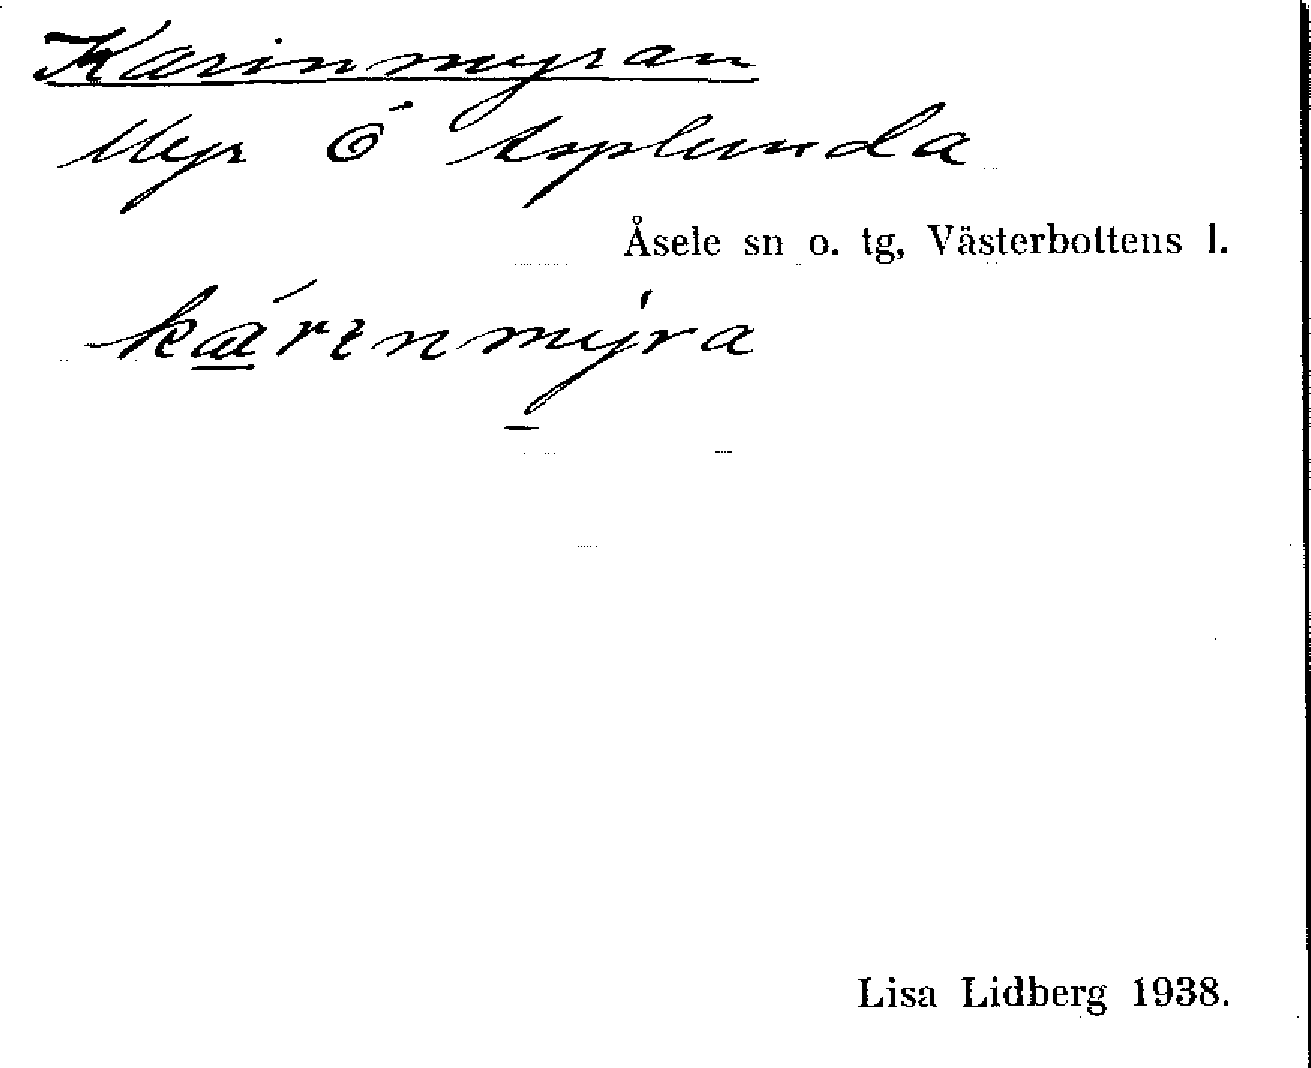 Karinmyran
Myr Ö Asplunda
Åsele sn o. tg, Västerbottens l.
kærenmy̍ra
Lisa Lidberg 1938.